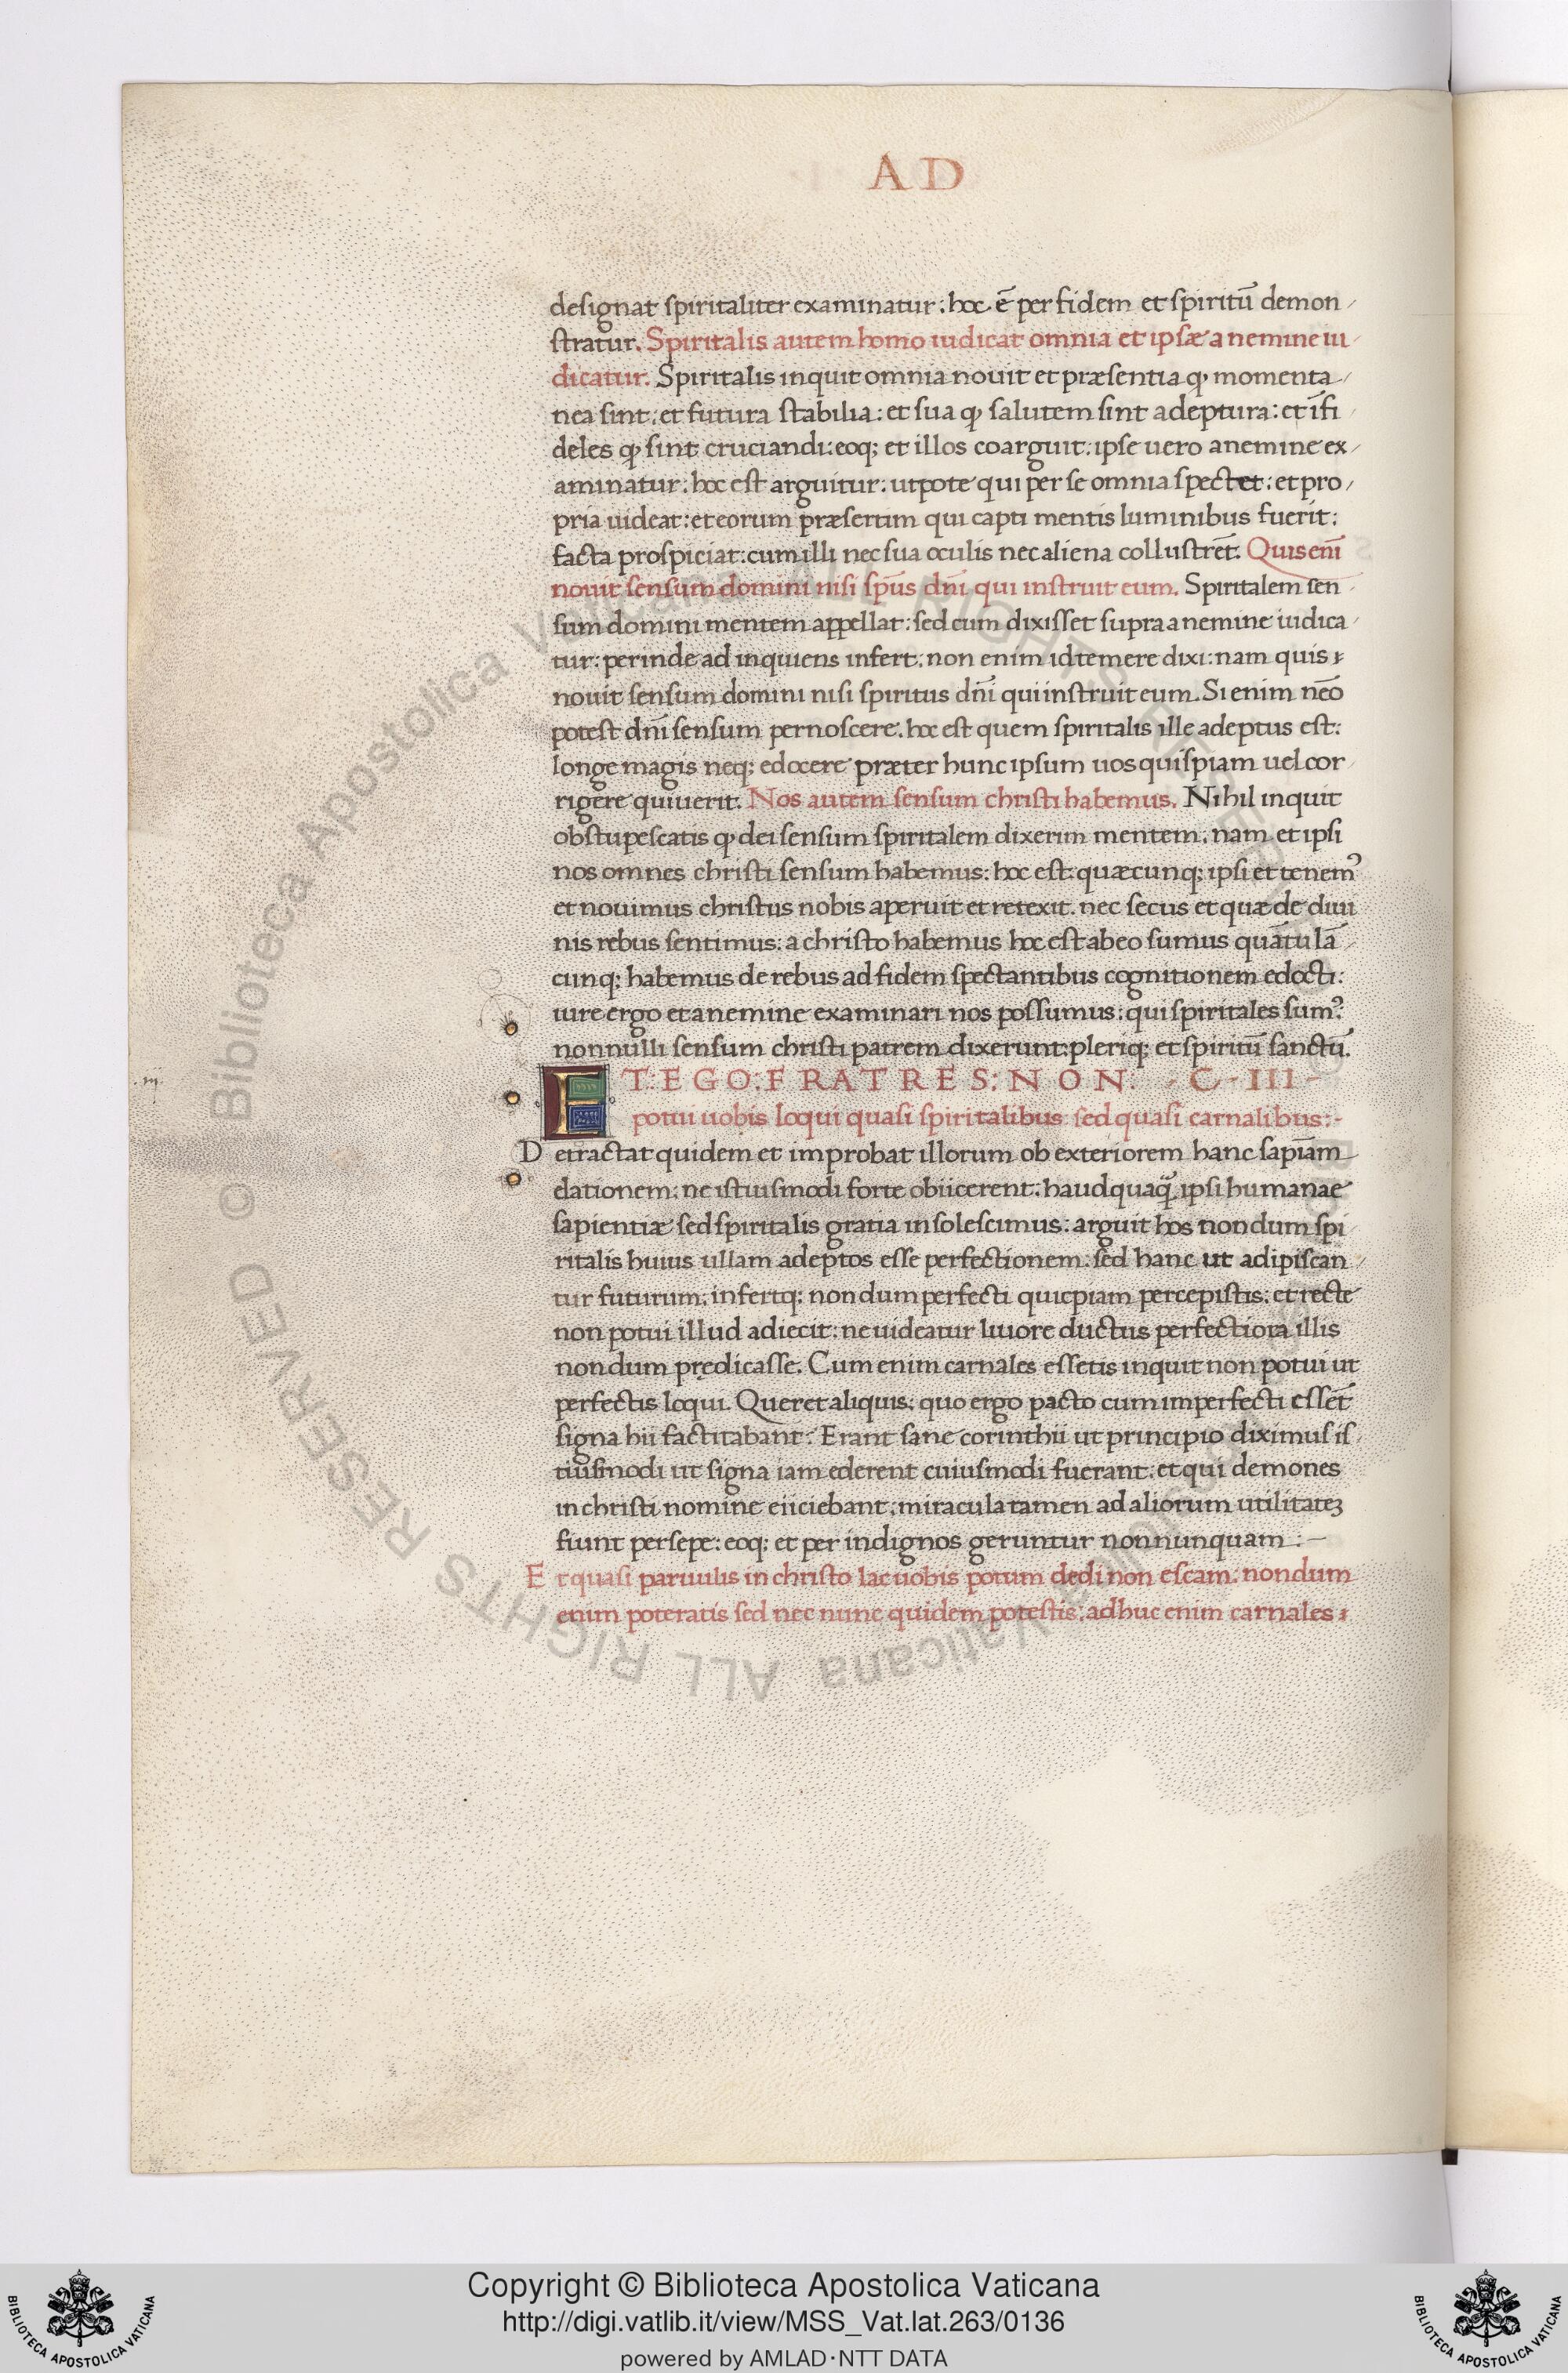 A D
designat spiritaliter examinatur: hoc ē per fidem et spiritū demon
stratur. Spiritalis autem homo iudicat omnia et ipsæ a nemine iu
dicatur. Spiritalis inquit omnia nouit et præsentia ꝙ momenta
nea sint: et futura stabilia: et sua ꝙ salutem sint adeptura: et īfi
deles ꝙ sint cruciandi: eoq; et illos coarguit: ipse uero a nemine ex
aminatur: hoc est arguitur: utpote qui per se omnia spectet: et pro
pria uideat: et eorum præsertim qui capti mentis luminibus fuerīt:
facta prospiciat: cum illi nec sua oculis nec aliena collustrēt. Quis enī
nouit sensum domini nisi spūs dnī qui instruit eum. Spiritalem sen
sum domini mentem appellat: sed cum dixisset supra a nemine iudica
tur: perinde ad inquiens infert: non enim id temere dixi: nam quis
nouit sensum domini nisi spiritus dnī qui instruit eum. Si enim nēo
potest dnī sensum pernoscere. hoc est quem spiritalis ille adeptus est:
longe magis neq; edocere præter hunc ipsum uos quispiam uel cor
rigere quiuerit. Nos autem sensum christi habemus. Nihil inquit
obstupescatis ꝙ dei sensum spiritalem dixerim mentem. nam et ipsi
nos omnes christi sensum habemus: hoc est quæcunq; ipsi et tenemꝰ
et nouimus christus nobis aperuit et retexit. nec secus et quæ de diui
nis rebus sentimus: a christo habemus hoc est ab eo sumus quātulā
cunq; habemus de rebus ad fidem spectantibus cognitionem edocti:
iure ergo et a nemine examinari nos possumus: qui spiritales sumꝰ:
nonnulli sensum christi patrem dixerunt: pleriq; et spiritū sanctū.
E T: E G O: F R A T R E S: N O N: C · III
potui uobis loqui quasi spiritalibus sed quasi carnalibus:-
.m.
D etractat quidem et improbat illorum ob exteriorem hanc sapīam
elationem: ne istiusmodi forte obiicerent: haud quaq̄ ipsi humanae
sapientiæ sed spiritalis gratia insolescimus: arguit hos nondum spi
ritalis huius ullam adeptos esse perfectionem: sed hanc ut adipiscan
tur futurum: infertq; nondum perfecti quicpiam percepistis: et recte
non potui illud adiecit: ne uideatur liuore ductus perfectiora illis
nondum prędicasse. Cum enim carnales essetis inquit non potui ut
perfectis loqui. Queret aliquis: quo ergo pacto cum imperfecti essēt
signa hii factitabant? Erant sane corinthii ut principio diximus is
tiusmodi ut signa iam ederent cuiusmodi fuerant: et qui demones
in christi nomine eiiciebant: miracula tamen ad aliorum utilitatēꝫ
fiunt persepe: eoq; et per indignos geruntur nonnunquam:—
E t quasi paruulis in christo lac uobis potum dedi non escam: nondum
enim poteratis sed nec nunc quidem potestis: adhuc enim carnales
© Biblioteca Apostolica Vaticana ALL RIGHTS RESERVED
Copyright © Biblioteca Apostolica Vaticana
http://digi.vatlib.it/view/MSS_Vat.lat.263/0136
powered by AMLAD·NTT DATA
BIBLIOTECA APOSTOLICA VATICANA
BIBLIOTECA APOSTOLICA VATICANA